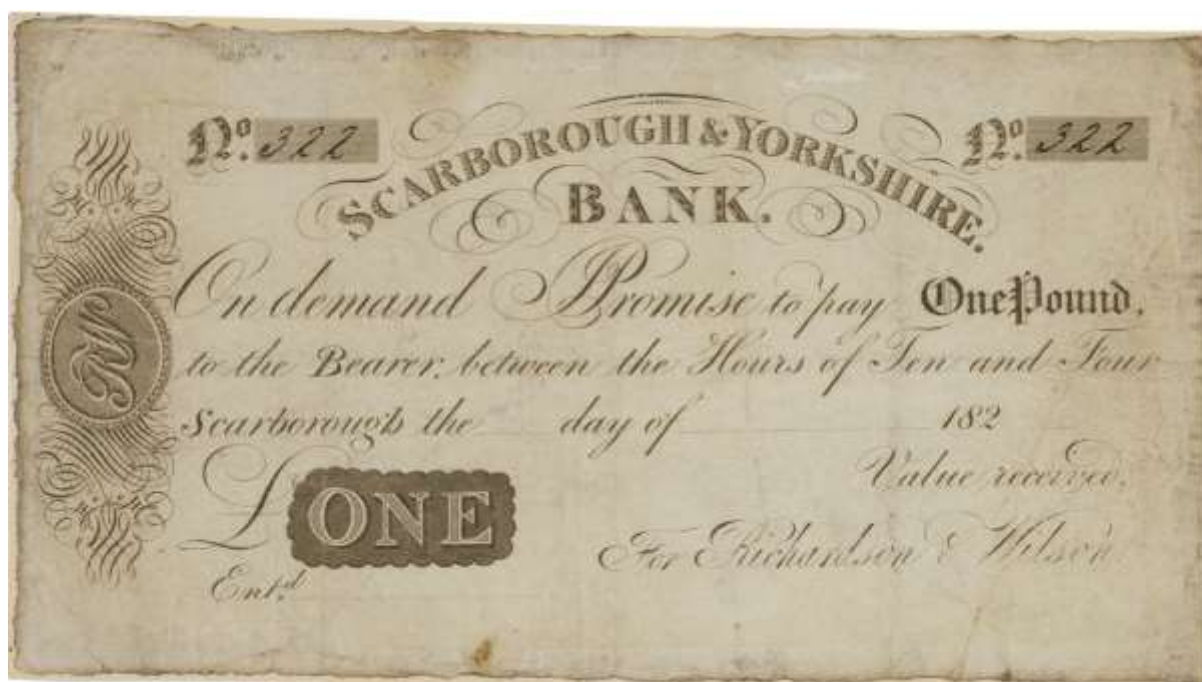 No. 322
No. 322
SCARBOROUGH & YORKSHIRE.
BANK.
On demand I Promise to pay One Pound,
to the Bearer, between the Hours of Ten and Four
Scarborough the day of 182
Value received,
£ ONE
For Richardson & Wilson
Entd.
RW